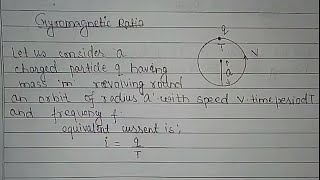 Gyromagnetic Ratio
q
Let us consider a
charged particle q having
mass 'm' revolving round
an orbit of radius 'a' with speed v. time period T
and frequency f.
equivalent current is:
i = q
T
T
v
a